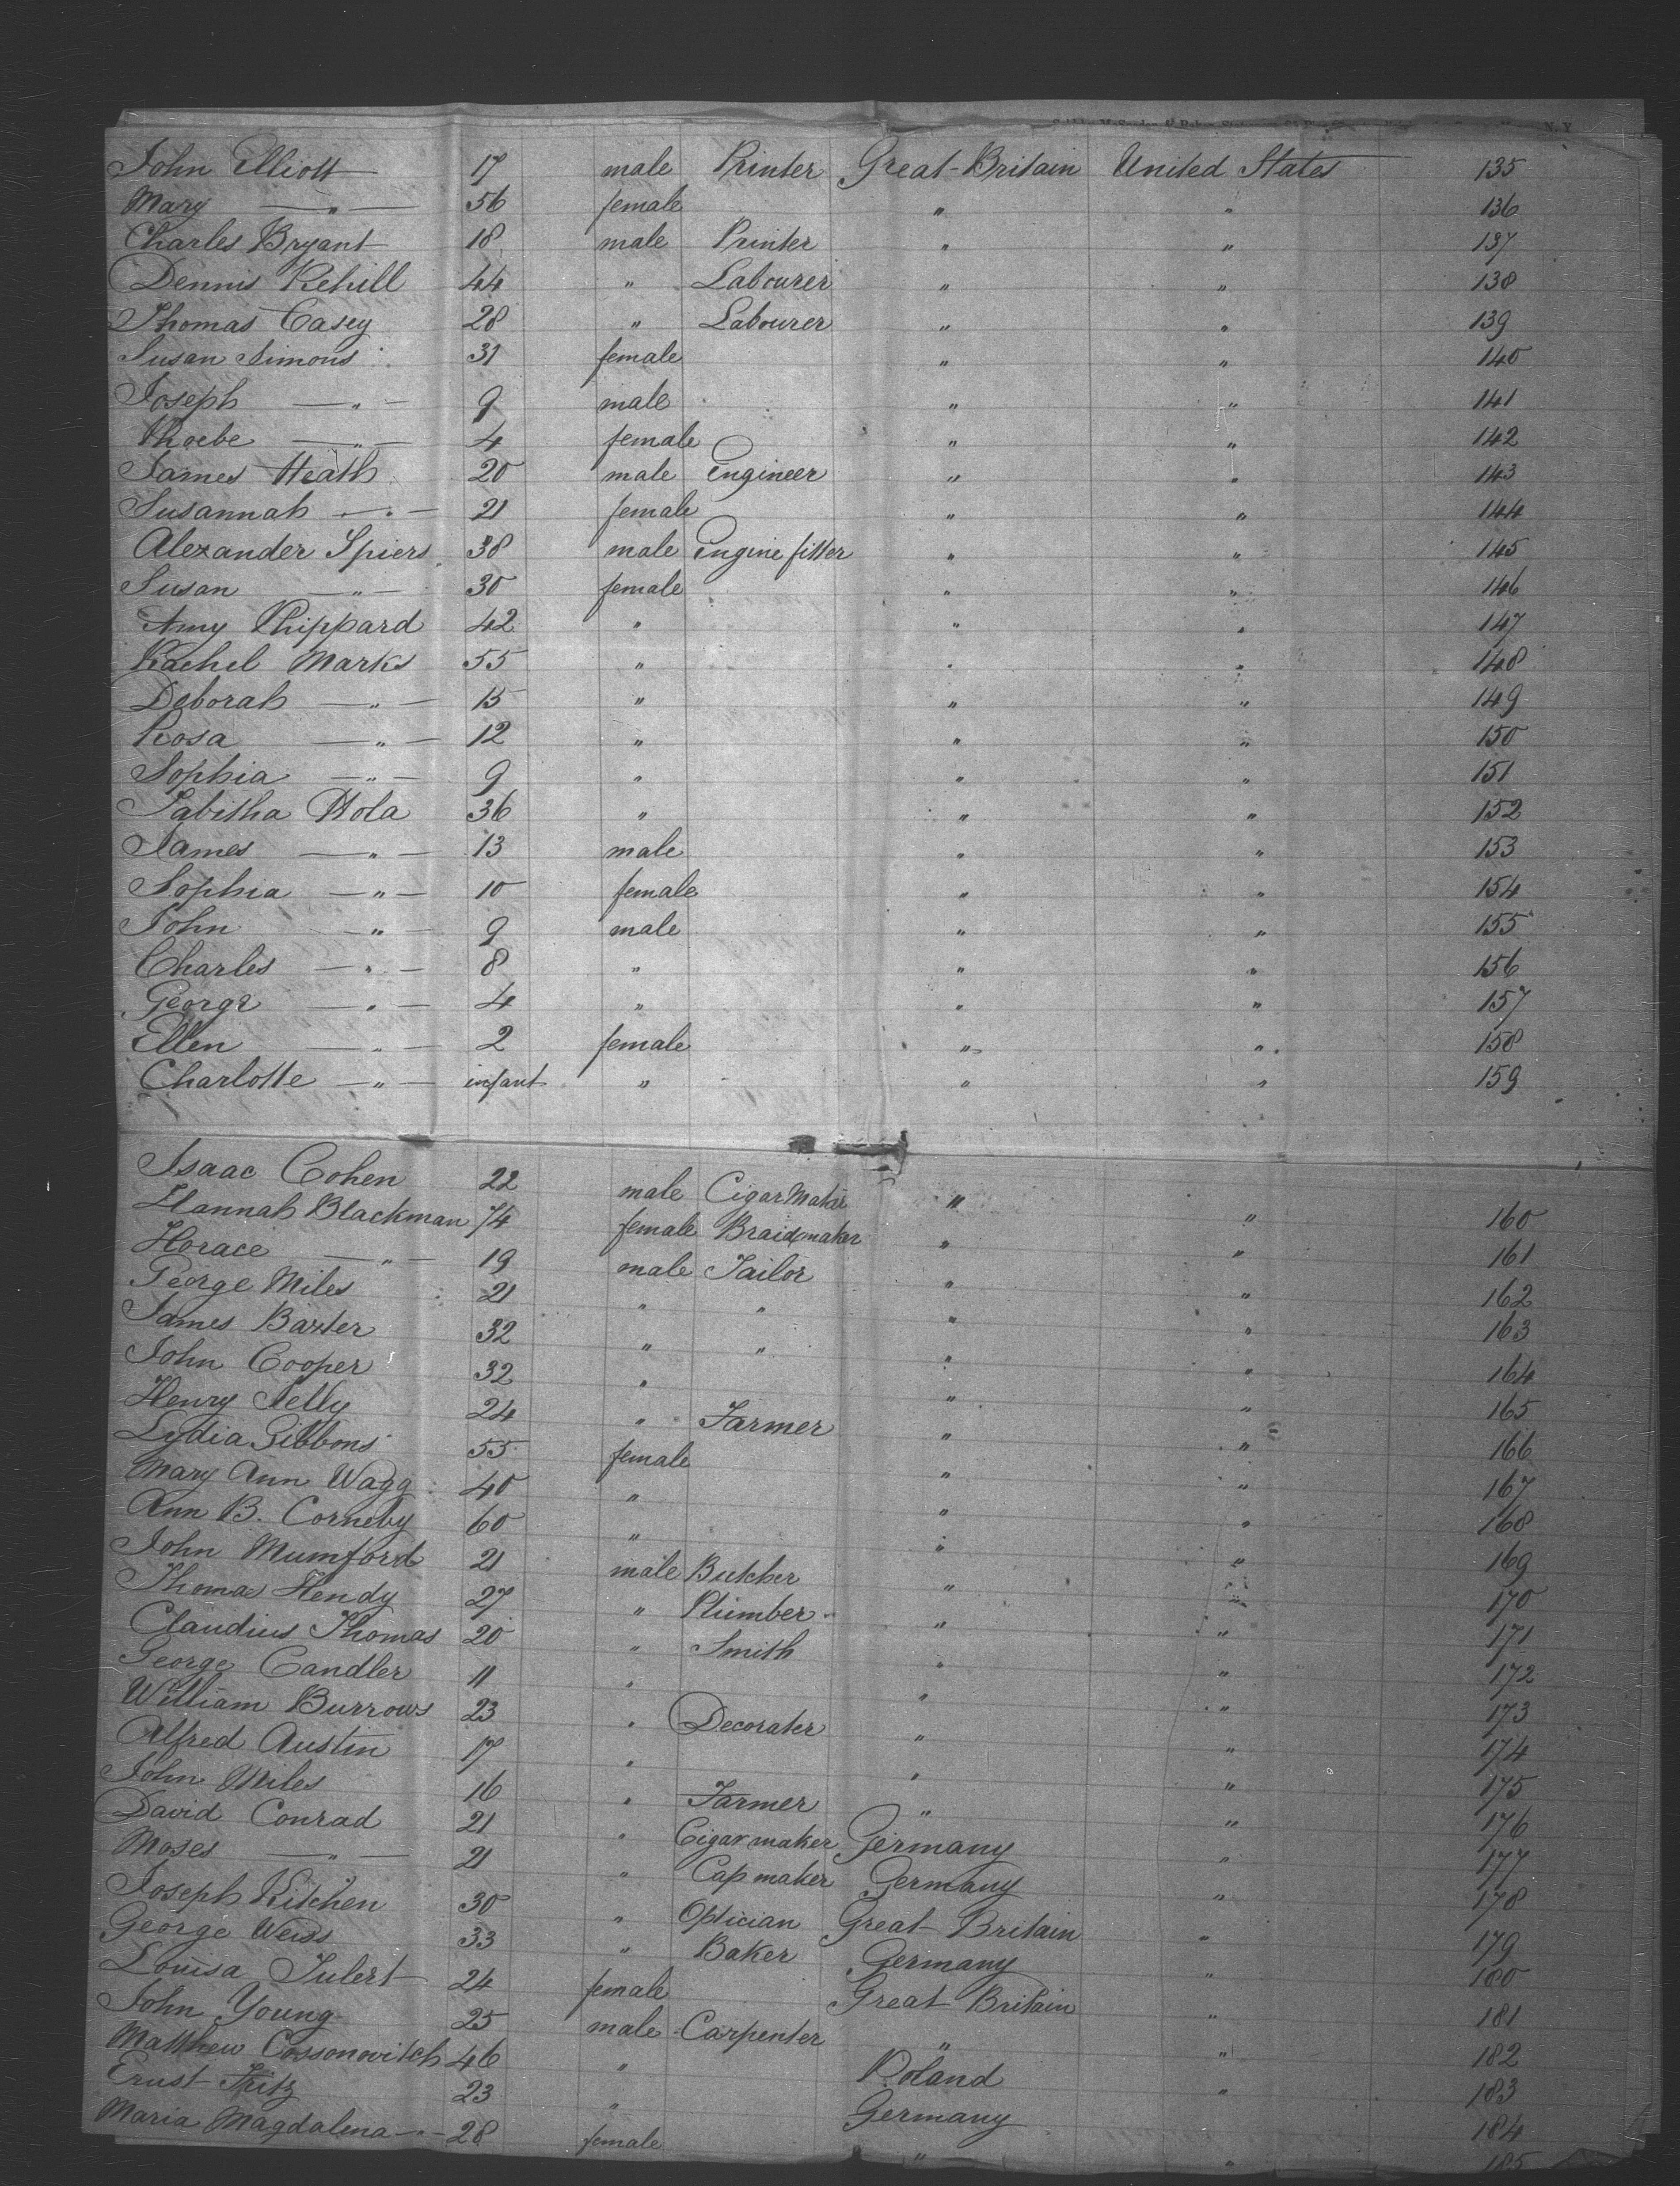 N.Y
John Elliott 17 male Printer Great-Britain United States 135
Mary — " — 56 female " " 136
Charles Bryant 18 male Printer " " 137
Dennis Kehill 44 " Labourer " " 138
Thomas Casey 28 " Labourer " " 139
Susan Simons 31 female " " 140
Joseph — " — 9 male " " 141
Phoebe — " — 4 female " " 142
James Heath 20 male Engineer " " 143
Susannah — " — 21 female " " 144
Alexander Spiers 38 male Engine fitter " " 145
Susan — " — 30 female " " 146
Amy Phippard 42 " " " 147
Rachel Marks 55 " " " 148
Deborah — " — 15 " " " 149
Rosa — " — 12 " " " 150
Sophia — " — 9 " " " 151
Tabitha Hola 36 " " " 152
James — " — 13 male " " 153
Sophia — " — 10 female " " 154
John — " — 9 male " " 155
Charles — " — 8 " " " 156
George — " — 4 " " " 157
Ellen — " — 2 female " " 158
Charlotte — " — infant " " " 159
Isaac Cohen 22 male Cigar Maker " " 160
Hannah Blackman 74 female Braidmaker " " 161
Horace — " — 19 male Tailor " " 162
George Miles 21 " " " " 163
James Baxter 32 " " " " 164
John Cooper 32 " " " 165
Henry Selly 24 " Farmer " " 166
Lydia Gibbons 55 female " " 167
Mary Ann Wagg 40 " " " 168
Ann B. Corneby 60 " " " 169
John Mumford 21 male Butcher " " 170
Thomas Hendy 27 " Plumber " " 171
Claudius Thomas 20 " Smith " " 172
George Candler 11 " " " 173
William Burrows 23 " Decorater " " 174
Alfred Austin 17 " " " 175
John Miles 16 " Farmer " " 176
David Conrad 21 " Cigar maker Germany " 177
Moses — " — 21 " Cap maker Germany " 178
Joseph Kitchen 30 " Optician Great Britain " 179
George Weiss 33 " Baker Germany " 180
Louisa Julert 24 female Great Britain " 181
John Young 25 male Carpenter " " 182
Matthew Cossonovitch 46 " Poland " 183
Ernst Fritz 23 " Germany 184
Maria Magdalena — " — 28 female " " 185